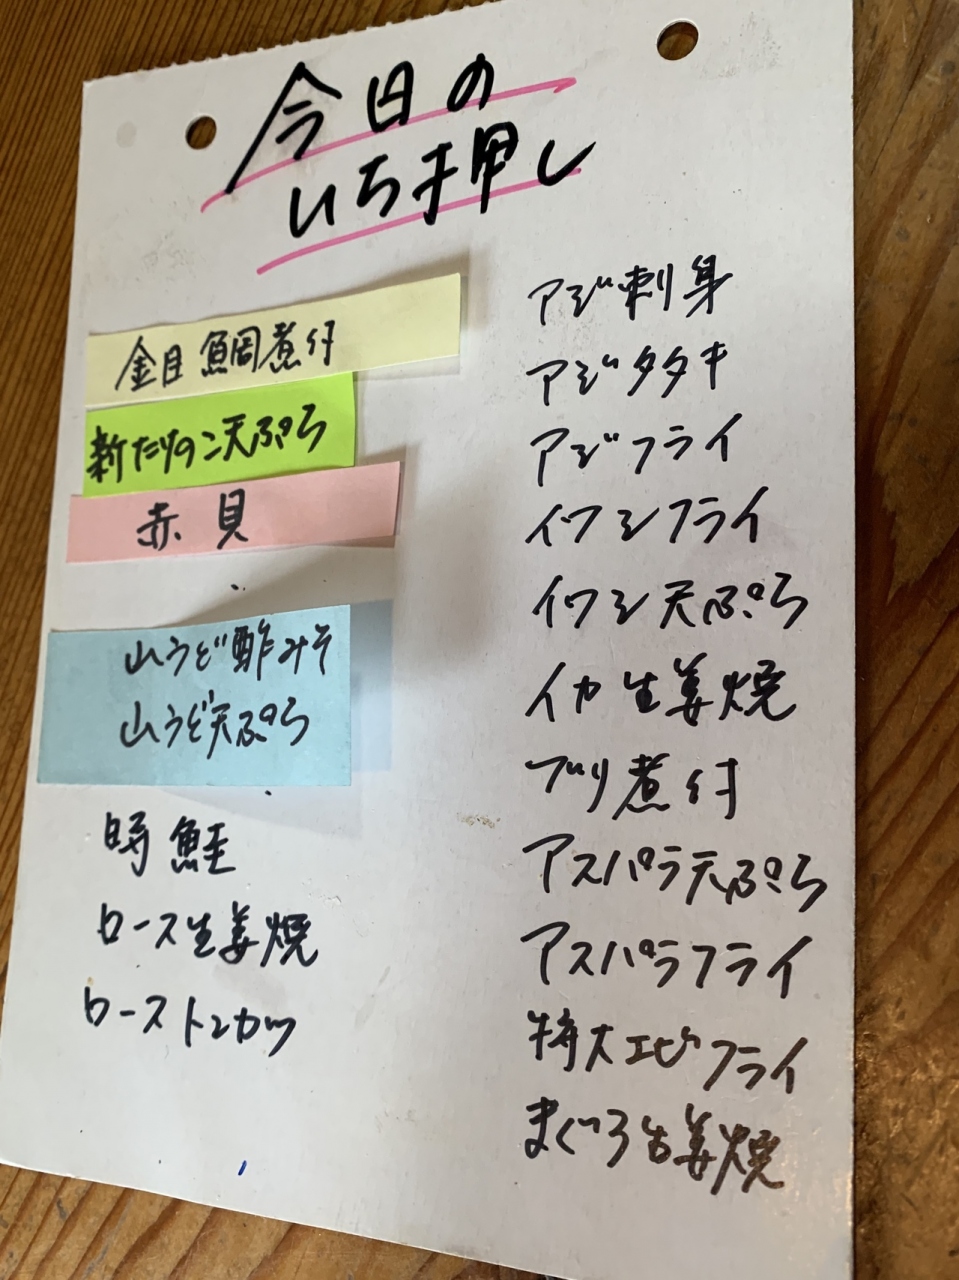 今日の
いち押し
金目鯛煮付
新たけのこ天ぷら
赤貝
山うど酢みそ
山うど天ぷら
時鮭
ロース生姜焼
ローストンカツ
アジ刺身
アジタタキ
アジフライ
イワシフライ
イワシ天ぷら
イカ生姜焼
ブリ煮付
アスパラ天ぷら
アスパラフライ
特大エビフライ
まぐろ生姜焼